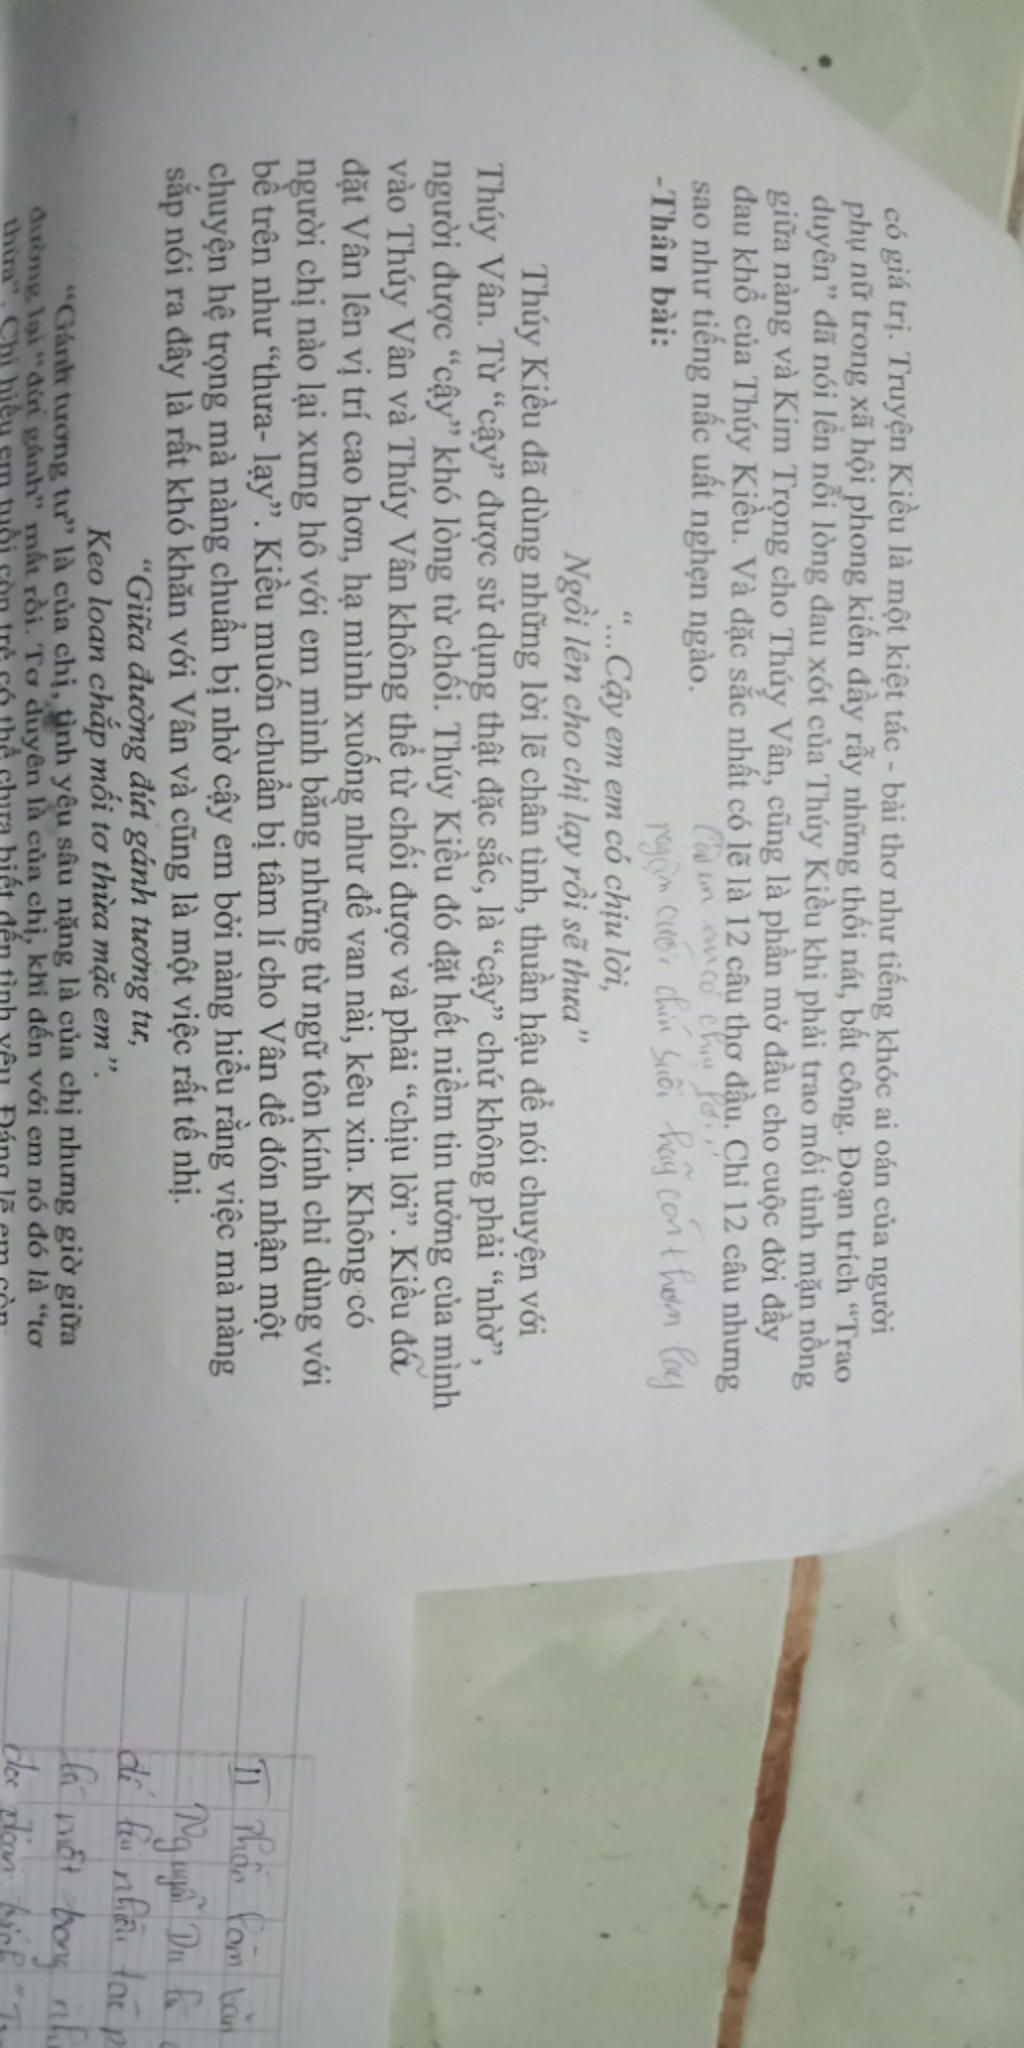 có giá trị. Truyện Kiều là một kiệt tác - bài thơ như tiếng khóc ai oán của người
phụ nữ trong xã hội phong kiến đầy rẫy những thối nát, bất công. Đoạn trích “Trao
duyên” đã nói lên nỗi lòng đau xót của Thúy Kiều khi phải trao mối tình mặn nồng
giữa nàng và Kim Trọng cho Thúy Vân, cũng là phần mở đầu cho cuộc đời đầy
đau khổ của Thúy Kiều. Và đặc sắc nhất có lẽ là 12 câu thơ đầu. Chỉ 12 câu nhưng
sao như tiếng nấc uất nghẹn ngào.
Cậy em em có chịu lời,
ngậm cười chín suối hãy còn thơm lây
- Thân bài:
“...Cậy em em có chịu lời,
Ngồi lên cho chị lạy rồi sẽ thưa”
Thúy Kiều đã dùng những lời lẽ chân tình, thuần hậu để nói chuyện với
Thúy Vân. Từ “cậy” được sử dụng thật đặc sắc, là “cậy” chứ không phải “nhờ”,
người được “cậy” khó lòng từ chối. Thúy Kiều đó đặt hết niềm tin tưởng của mình
vào Thúy Vân và Thúy Vân không thể từ chối được và phải “chịu lời”. Kiều đã
đặt Vân lên vị trí cao hơn, hạ mình xuống như để van nài, kêu xin. Không có
người chị nào lại xưng hô với em mình bằng những từ ngữ tôn kính chỉ dùng với
bề trên như “thưa- lạy”. Kiều muốn chuẩn bị tâm lí cho Vân để đón nhận một
chuyện hệ trọng mà nàng chuẩn bị nhờ cậy em bởi nàng hiểu rằng việc mà nàng
sắp nói ra đây là rất khó khăn với Vân và cũng là một việc rất tế nhị.
“Giữa đường đứt gánh tương tư,
Keo loan chắp mối tơ thừa mặc em”.
“Gánh tương tư” là của chị, tình yêu sâu nặng là của chị nhưng giờ giữa
đường lại “đứt gánh” mất rồi. Tơ duyên là của chị, khi đến với em nó đó là “tơ
thừa”. Chị hiểu em tuổi còn trẻ có thể chưa biết đến tình yêu. Đáng lẽ em còn
II phần làm văn
Nguyễn Du là
để lại nhiều tác
là một trong
đọc đoạn trích